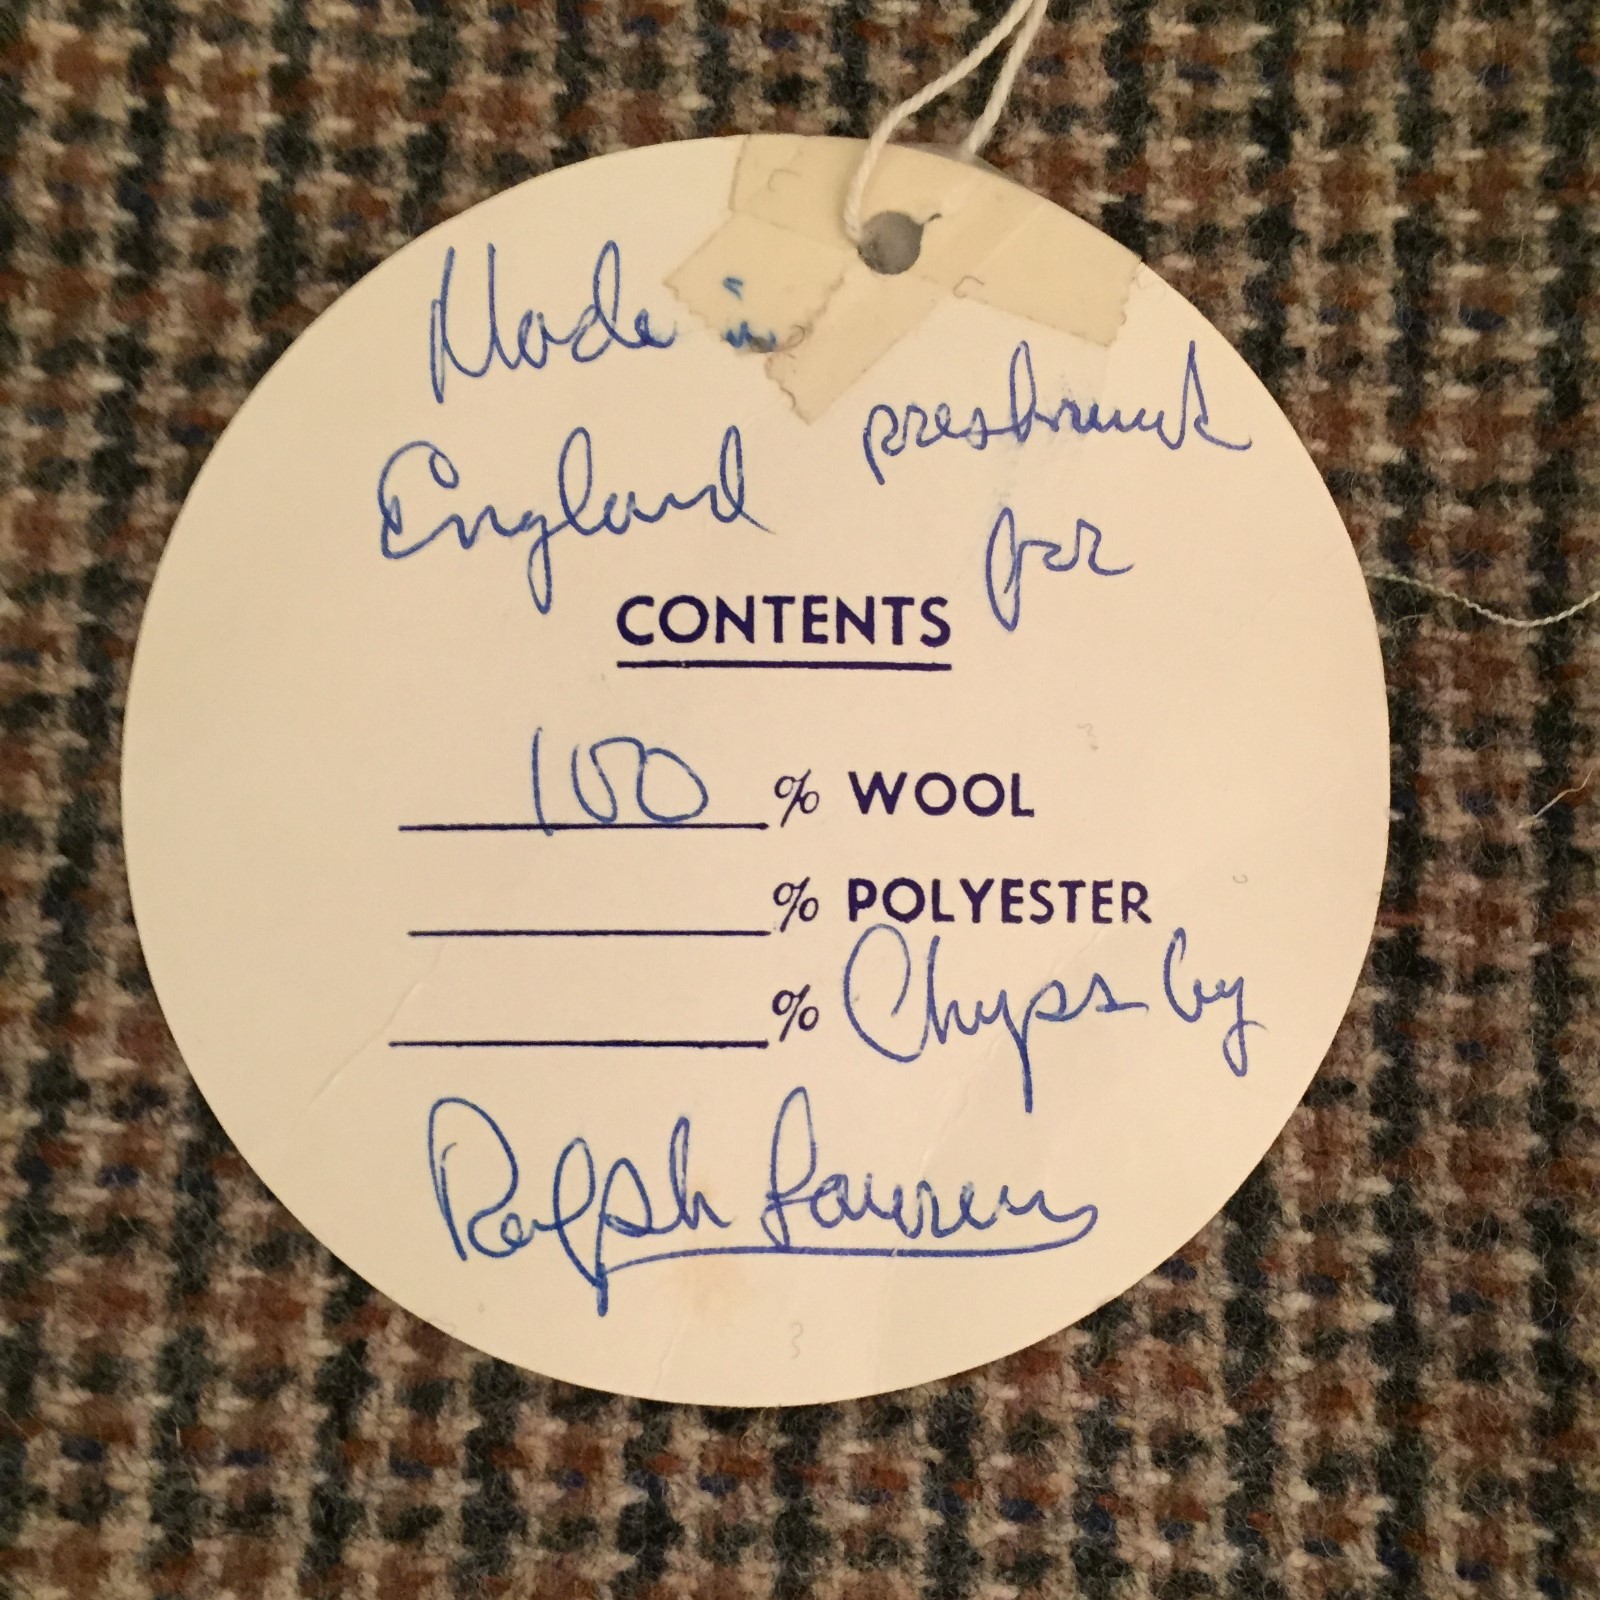 Made in
England
preshrunk
for
CONTENTS
100 % WOOL
% POLYESTER
% Chyps by
Ralph Lauren